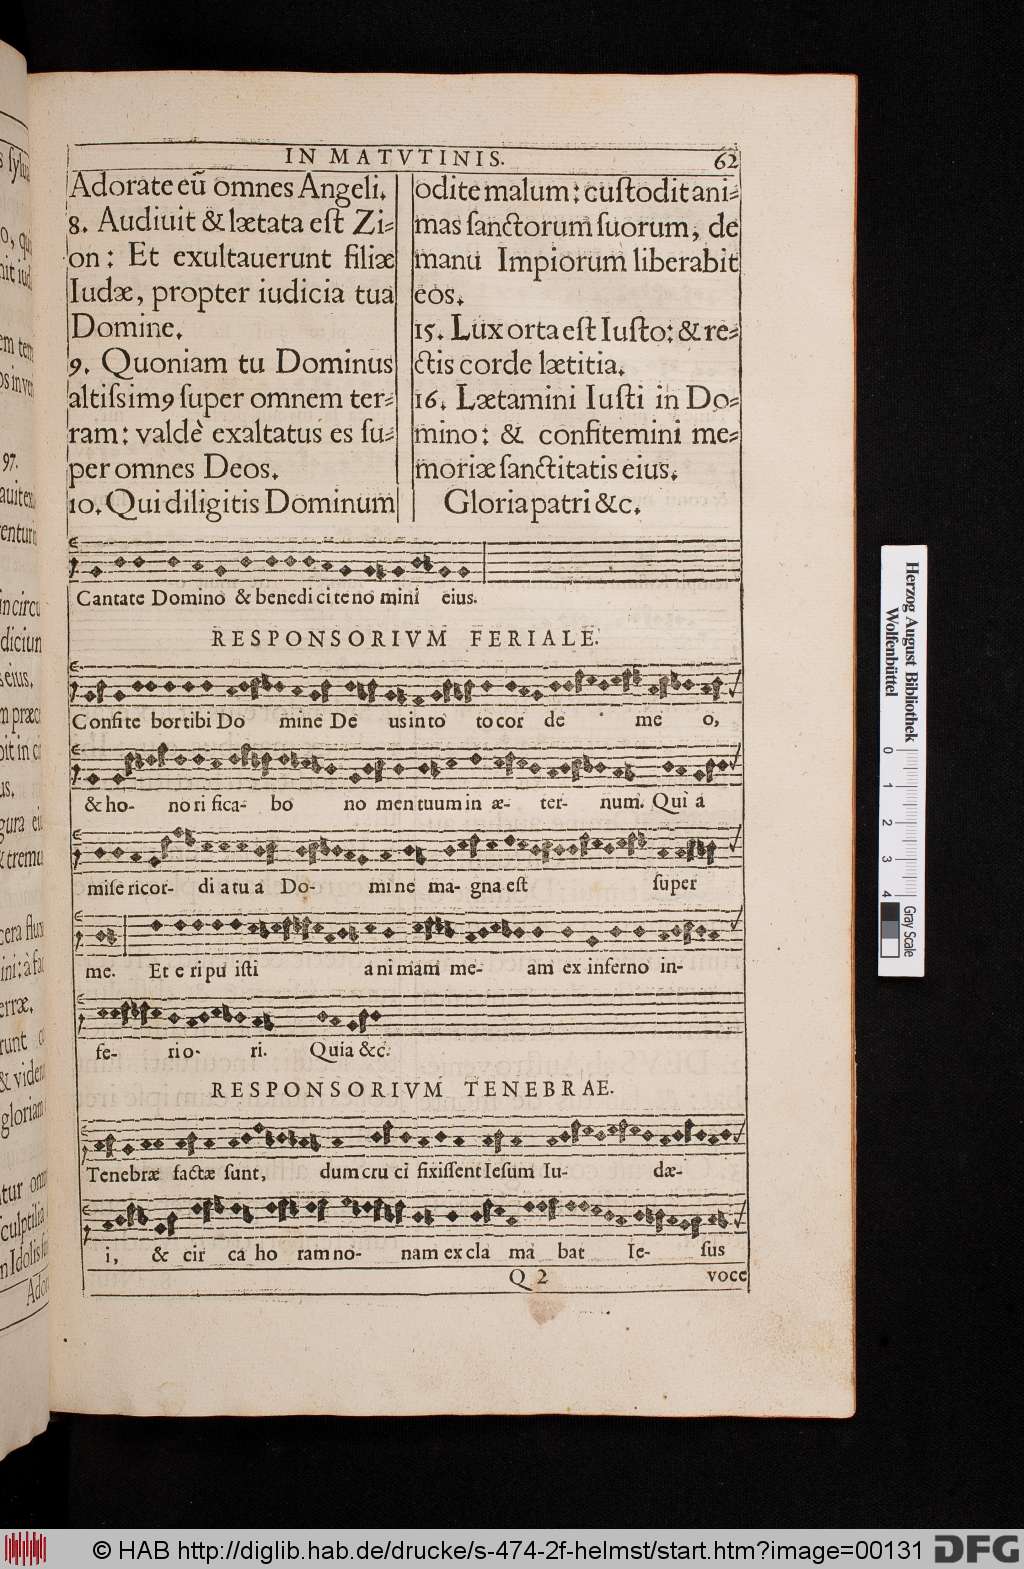 IN MATVTINIS.
62
Adorate eũ omnes Angeli.
8. Audiuit & lætata eſt Zi-
on: Et exultauerunt filiæ
Iudæ, propter iudicia tua
Domine.
9. Quoniam tu Dominus
altiſsimꝰ ſuper omnem ter-
ram: valdè exaltatus es ſu-
per omnes Deos.
10. Qui diligitis Dominum
odite malum: cuſtodit ani-
mas ſanctorum ſuorum, de
manu Impiorum liberabit
eos.
15. Lux orta eſt Iuſto: & re-
ctis corde lætitia.
16. Lætamini Iuſti in Do-
mino: & confitemini me-
moriæ ſanctitatis eius.
Gloria patri &c.
Cantate Domino & benedi ci te no mini eius.
RESPONSORIVM FERIALE.
Confi te bor tibi Do mine De us in to to cor de me o,
& ho- no ri fica- bo no men tuum in æ- ter- num. Qui a
miſe ricor- di a tu a Do- mi ne ma- gna eſt ſuper
me. Et e ri pu iſti a ni mam me- am ex inferno in-
fe- ri o- ri. Quia &c.
RESPONSORIVM TENEBRAE.
Tenebræ factæ ſunt, dum cru ci fixiſſent Ieſum Iu- dæ-
i, & cir ca ho ram no- nam ex cla ma bat Ie- ſus
Q 2
voce
97.
Herzog August Bibliothek
Wolfenbüttel
0 1 2 3 4
Gray Scale
© HAB http://diglib.hab.de/drucke/s-474-2f-helmst/start.htm?image=00131
DFG